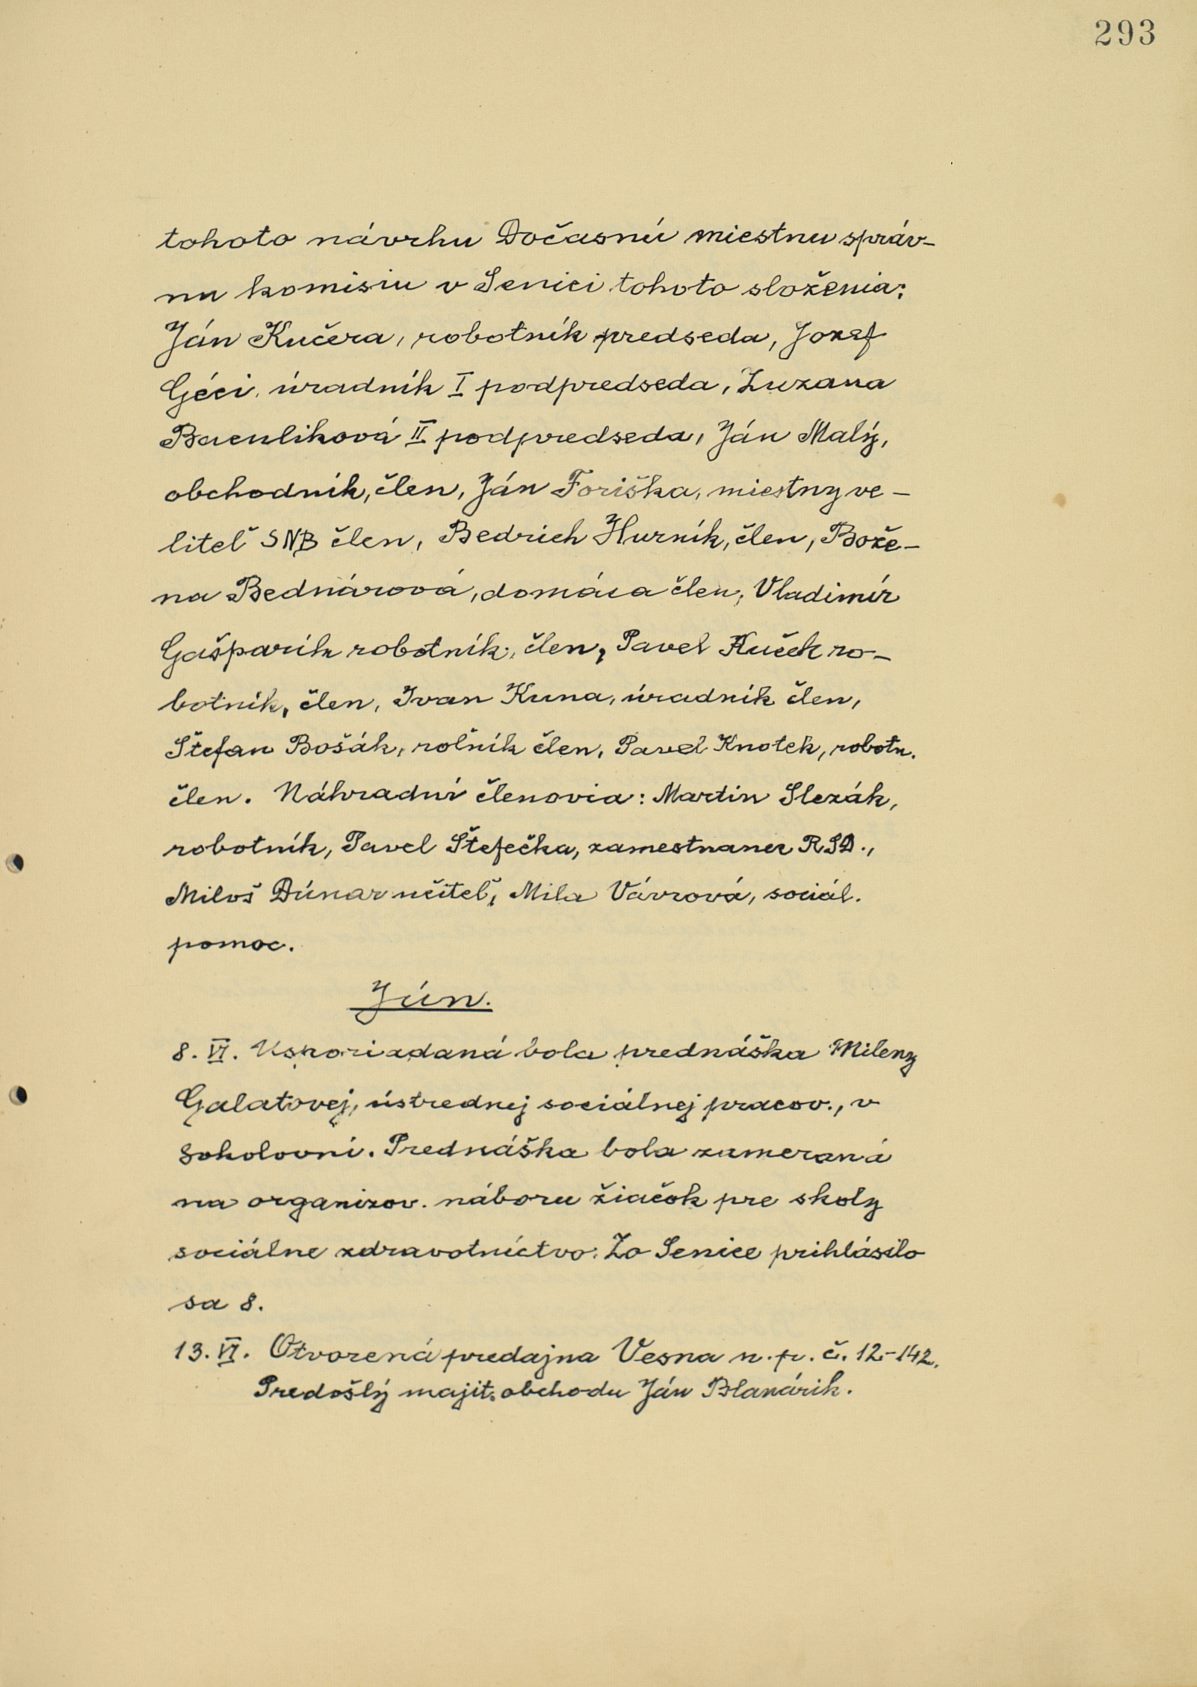 293
tohoto návrhu Dočasnú miestnu správ-
nu komisiu v Senici tohoto složenia:
Ján Kučera, robotník predseda, Jozef
Géci, úradník I podpredseda, Zuzana
II podpredseda, Ján Malý,
obchodník, člen, Ján Foriška, miestny ve-
liteľ SNB člen, Bedrich Hurník, člen, Bože-
na Bednárová, domáca člen, Vladimír
Gašparík robotník, člen, Pavel ro-
botník, člen, Ivan Kuna, úradník člen,
Štefan Bošák, roľník člen, Pavel Knotek, robotn.
člen. Náhradní členovia: Martin Slezák,
robotník, Pavel Štefečka, zamestnanec RSD.,
Miloš Dúnar učiteľ, Mila Vávrová, sociál.
pomoc.
Jún.
8. VI. Usporiadaná bola prednáška Mileny
Galatovej, ústrednej sociálnej pracov., v
Sokolovni. Prednáška bola zameraná
na organizov. náboru žiačok pre skoly
sociálne zdravotníctvo. Zo Senice prihlásilo
sa 8.
13. VI. Otvorená predajna Vesna n. p. č. 12-142.
Predošlý majit. obchodu Ján Blanárik.